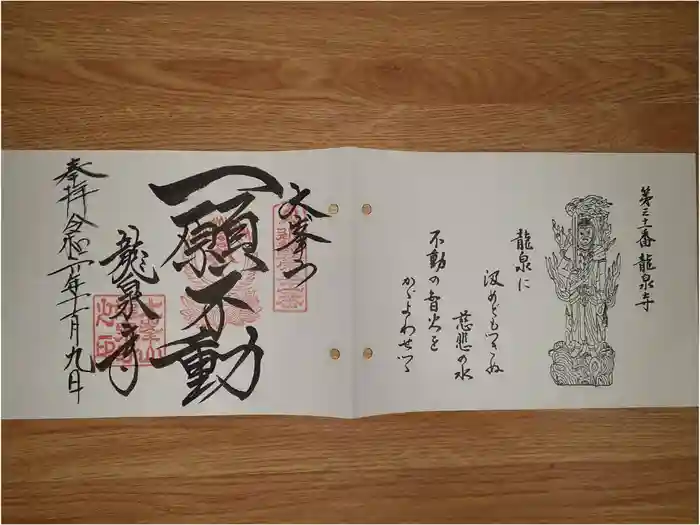 第三十一番 龍泉寺
龍泉に
汲めどもつきぬ
慈悲の水
不動の智火を
かがよわせつゝ
大峯山
一願不動
龍泉寺
奉拝 令和二年十一月九日